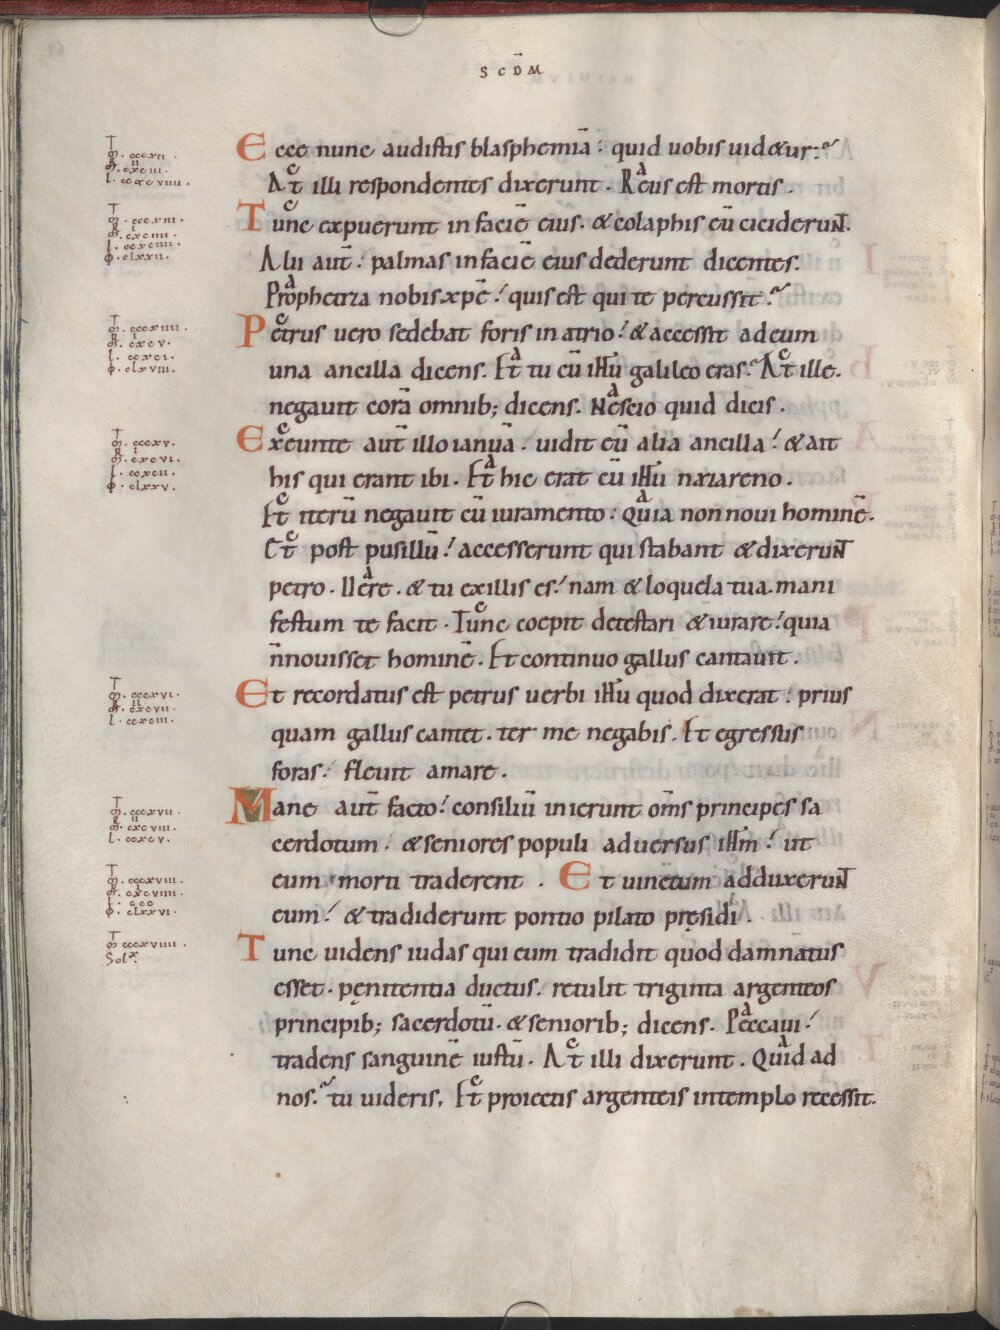 SCD̄M
Ecce nunc audistis blasphemiā. quid uobis uidetur.
At illi respondentes dixerunt. Reus est mortis.
Tunc expuerunt in faciē eius. & colaphis eū ceciderunt.
Alii aut̄. palmas in faciē eius dederunt dicentes.
Prophetiza nobis xp̄e. quis est qui te percussit.
Petrus uero sedebat foris in atrio. & accessit ad eum
una ancilla dicens. Et tu cū ih̄u galileo eras. At ille.
negauit corā omnib; dicens. Nescio quid dicis.
Exeunte aut̄ illo ianuā. uidit eū alia ancilla. & ait
his qui erant ibi. Et hic erat cū ih̄u nazareno.
Et iterū negauit cū iuramento. Quia non noui hominē.
Et post pusillū. accesserunt qui stabant & dixerunt
petro. Uere. & tu ex illis es. nam & loquela tua. mani
festum te facit. Tunc coepit detestari & iurare. quia
n̄ nouisset hominē. Et continuo gallus cantauit.
Et recordatus est petrus uerbi ih̄u quod dixerat. prius
quam gallus cantet. ter me negabis. Et egressus
foras. fleuit amare.
Mane aut̄ facto. consiliū inierunt om̄s principes sa
cerdotum. & seniores populi aduersus ih̄m. ut
eum morti traderent. Et uinctum adduxerunt
eum. & tradiderunt pontio pilato pręsidi.
Tunc uidens iudas qui eum tradidit quod damnatus
esset. penitentia ductus. retulit triginta argenteos
principib; sacerdotū. & seniorib; dicens. Peccaui.
tradens sanguinē iustū. At illi dixerunt. Quid ad
nos. tu uideris. Et proiectis argenteis in templo recessit.